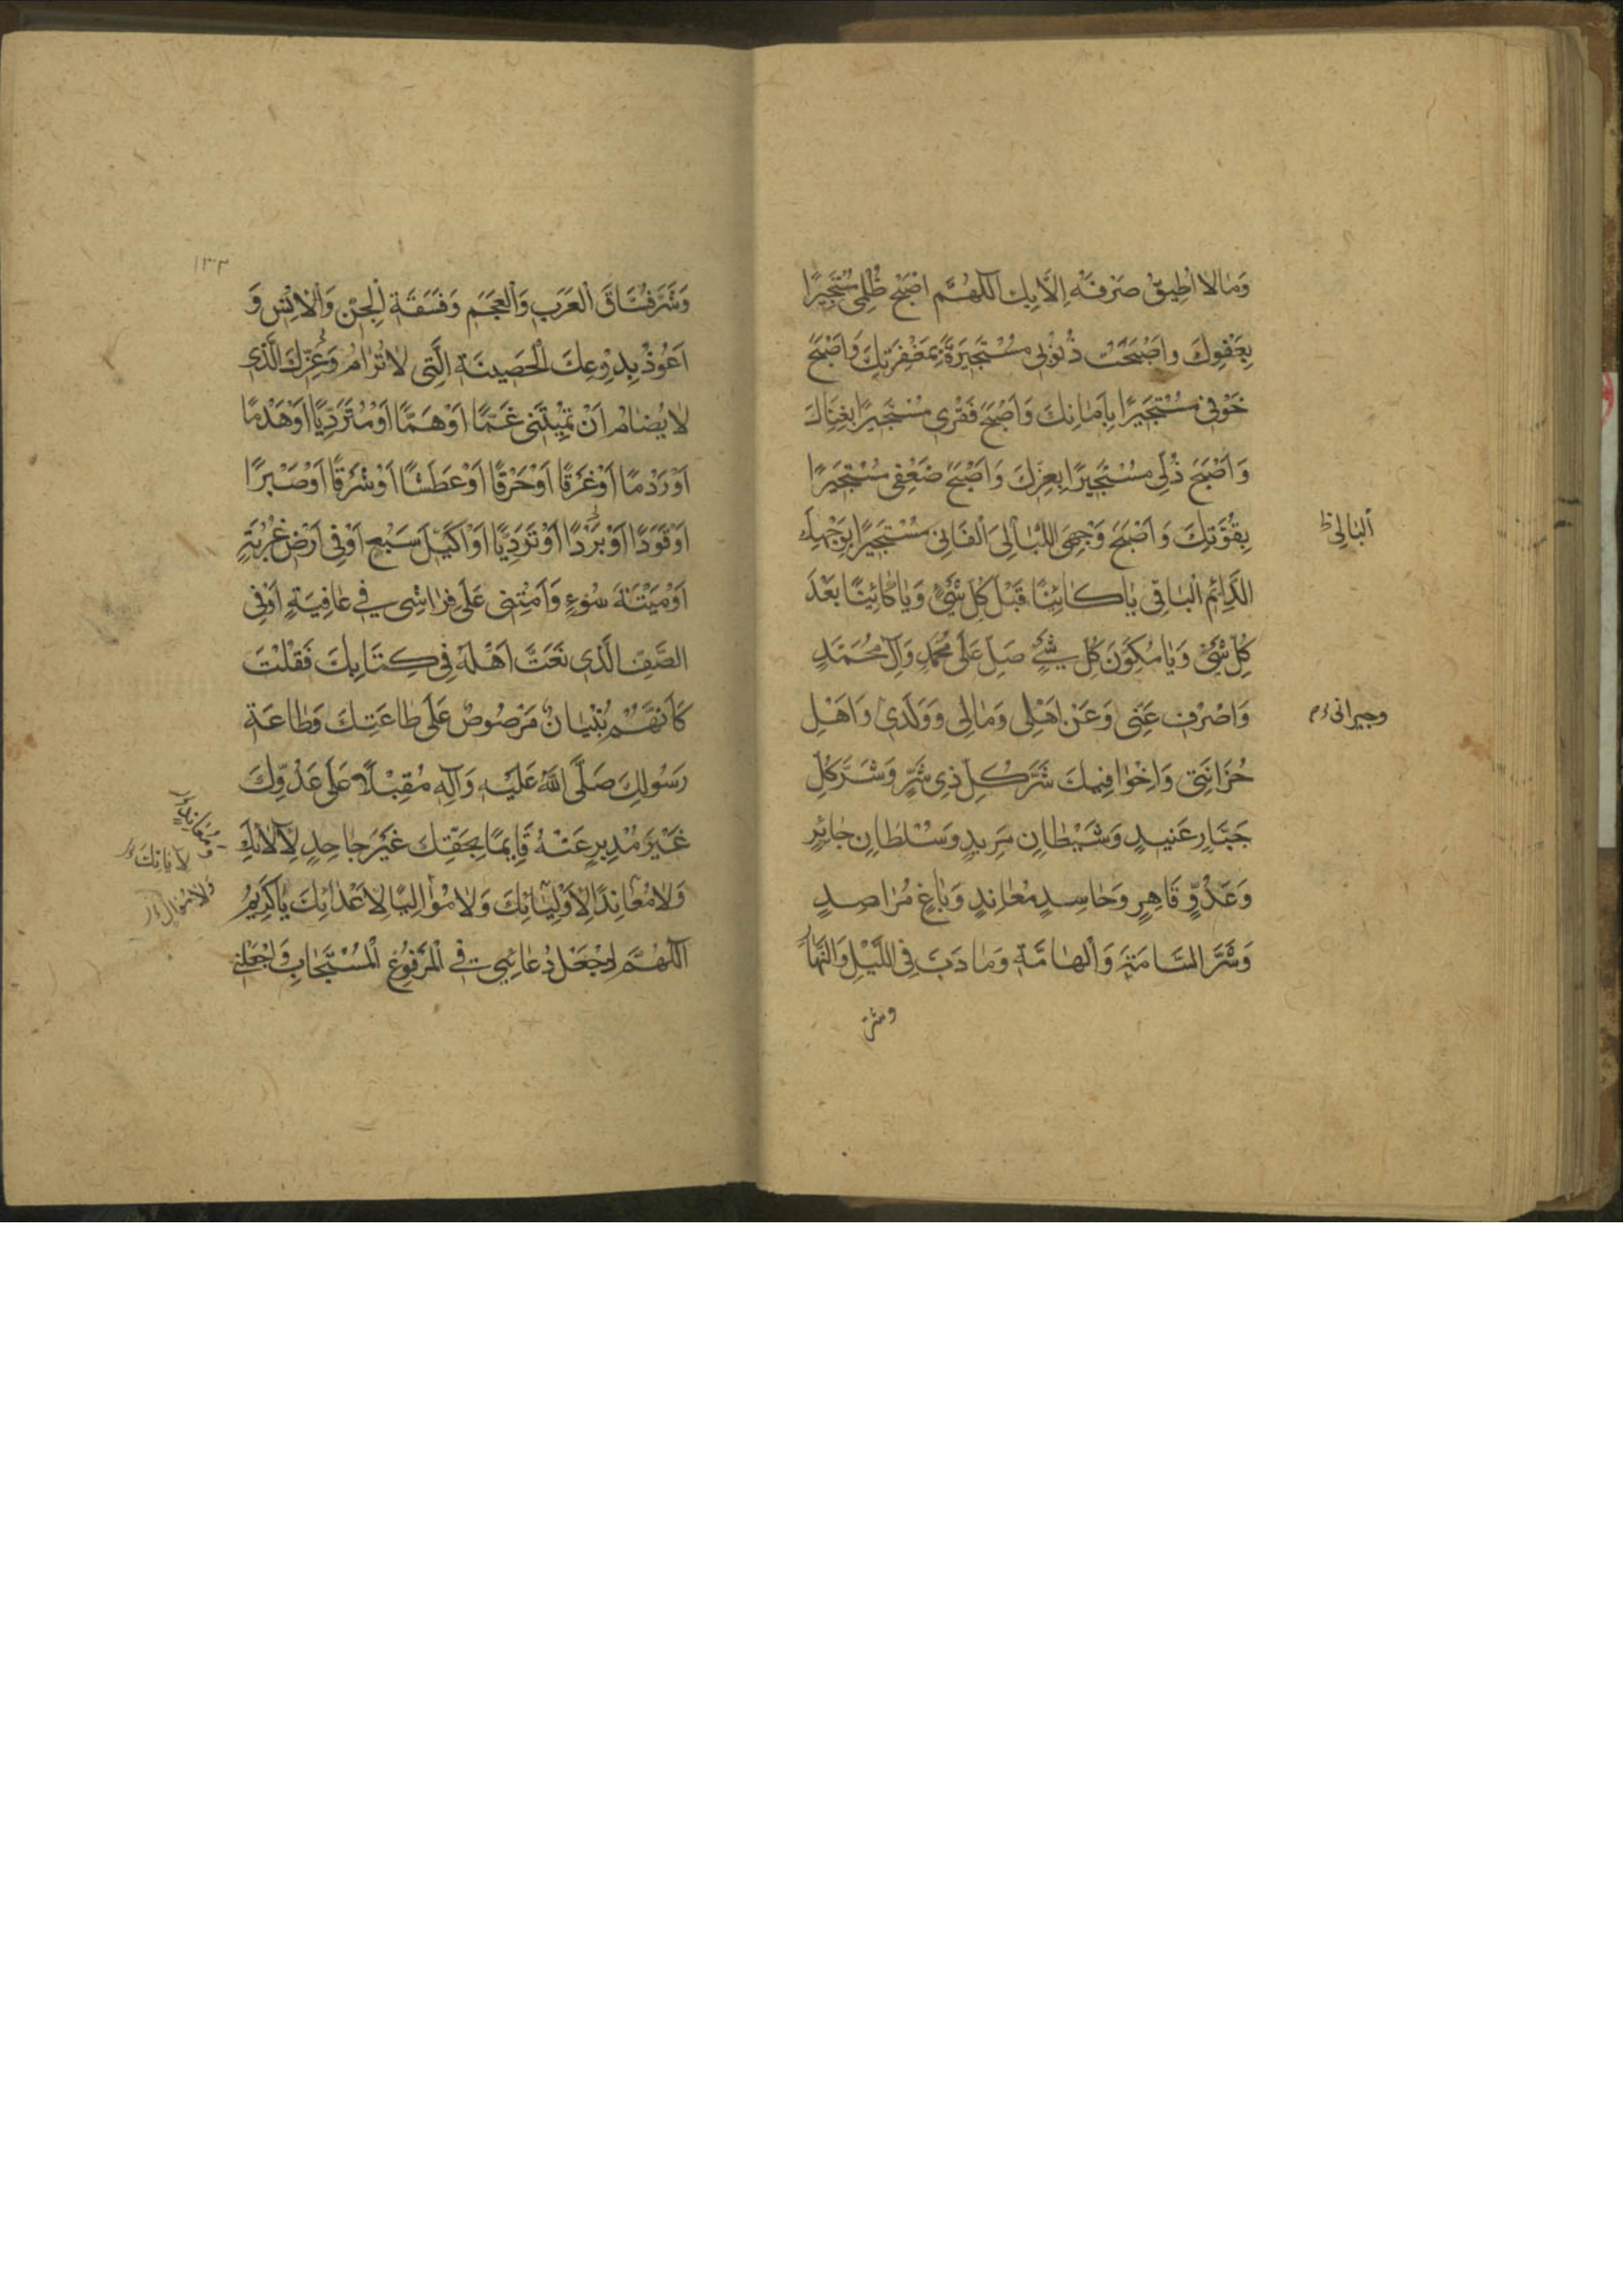 وَمٰا لاٰ اُطِيقُ صَرْفَهُ اِلاَّ بِكَ اَللّهُمَّ اَصْبَحَ ظُلْمِى مُسْتَجِيرًا
بِعَفْوِكَ وَاَصْبَحَتْ ذُنُوبِى مُسْتَجِيرَةً بِمَغْفِرَتِكَ وَاَصْبَحَ
خَوْفِى مُسْتَجِيرًا بِاَمٰانِكَ وَاَصْبَحَ فَقْرِى مُسْتَجِيرًا بِغِنَاكَ
وَاَصْبَحَ ذُلِّى مُسْتَجِيرًا بِعِزِّكَ وَاَصْبَحَ ضَعْفِى مُسْتَجِيرًا
بِقُوَّتِكَ وَاَصْبَحَ وَجْهِىَ الْبٰالِىَ الْفَانِى مُسْتَجِيرًا بِوَجْهِكَ
اَلْبٰالِىْ ظ
الدَّائِمِ الْبٰاقِى يٰا كٰائِنًا قَبْلَ كُلِّ شَىْءٍ وَيٰا كٰائِنًا بَعْدَ
كُلِّ شَىْءٍ وَيٰا مُكَوِّنَ كُلِّ شَىْءٍ صَلِّ عَلَى مُحَمَّدٍ وَآلِ مُحَمَّدٍ
وَاصْرِفْ عَنِّى وَعَنْ اَهْلِى وَمٰالِى وَوَلَدِى وَاَهْلِ
وجيرانى
حُزَانَتِى وَاِخْوٰانِى فِيكَ شَرَّ كُلِّ ذِى شَرٍّ وَشَرَّ كُلِّ
جَبَّارٍ عَنِيدٍ وَشَيْطٰانٍ مَرِيدٍ وَسُلْطٰانٍ جٰائِرٍ
وَعَدُوٍّ قَاهِرٍ وَحٰاسِدٍ مُعٰانِدٍ وَبٰاغٍ مُرٰاصِدٍ
وَشَرَّ السَّامَّةِ وَالْهٰامَّةِ وَمٰا دَبَّ فِى اللَّيْلِ وَالنَّهٰارِ
وشرّ
١٣٣
وَشَرَّ فُسَّاقِ الْعَرَبِ وَالْعَجَمِ وَفَسَقَةِ الْجِنِّ وَالْاِنْسِ وَ
اَعُوذُ بِدِرْعِكَ الْحَصِينَةِ الَّتِى لاٰ تُرٰامُ وَعِزِّكَ الَّذِى
لاٰ يُضٰامُ اَنْ تُمِيتَنِى غَمًّا اَوْ هَمًّا اَوْ مُتَرَدِّيًا اَوْ هَدْمًا
اَوْ رَدْمًا اَوْ غَرَقًا اَوْ حَرْقًا اَوْ عَطَشًا اَوْ شَرَقًا اَوْ صَبْرًا
اَوْ قَوَدًا اَوْ بَرْدًا اَوْ تَرَدِّيًا اَوْ اَكِيلَ سَبُعٍ اَوْ فِى اَرْضِ غُرْبَةٍ
اَوْ مَيْتَةَ سُوءٍ وَاَمِتْنِى عَلَى فِرٰاشِى فِى عٰافِيَةٍ اَوْ فِى
الصَّفِّ الَّذِى نَعَتَّ اَهْلَهُ فِى كِتَابِكَ فَقُلْتَ
كَاَنَّهُمْ بُنْيٰانٌ مَرْصُوصٌ عَلَى طٰاعَتِكَ وَطٰاعَةِ
رَسُولِكَ صَلَّى اللّٰهُ عَلَيْهِ وَآلِهِ مُقْبِلًا عَلَى عَدُوِّكَ
غَيْرَ مُدْبِرٍ عَنْهُ قَائِمًا بِحَقِّكَ غَيْرَ جٰاحِدٍ لِآلاٰئِكَ
وَمُعَانِدٍ
لِآيَاتِكَ
وَلاٰ مُعٰانِدًا لِاَوْلِيٰائِكَ وَلاٰ مُوٰالِيًا لِاَعْدٰائِكَ يٰا كَرِيمُ
وَلاٰ مُوَالٍ
اَللّهُمَّ اجْعَلْ دُعٰائِى فِى الْمَرْفُوعِ الْمُسْتَجٰابِ وَاجْعَلْنِى